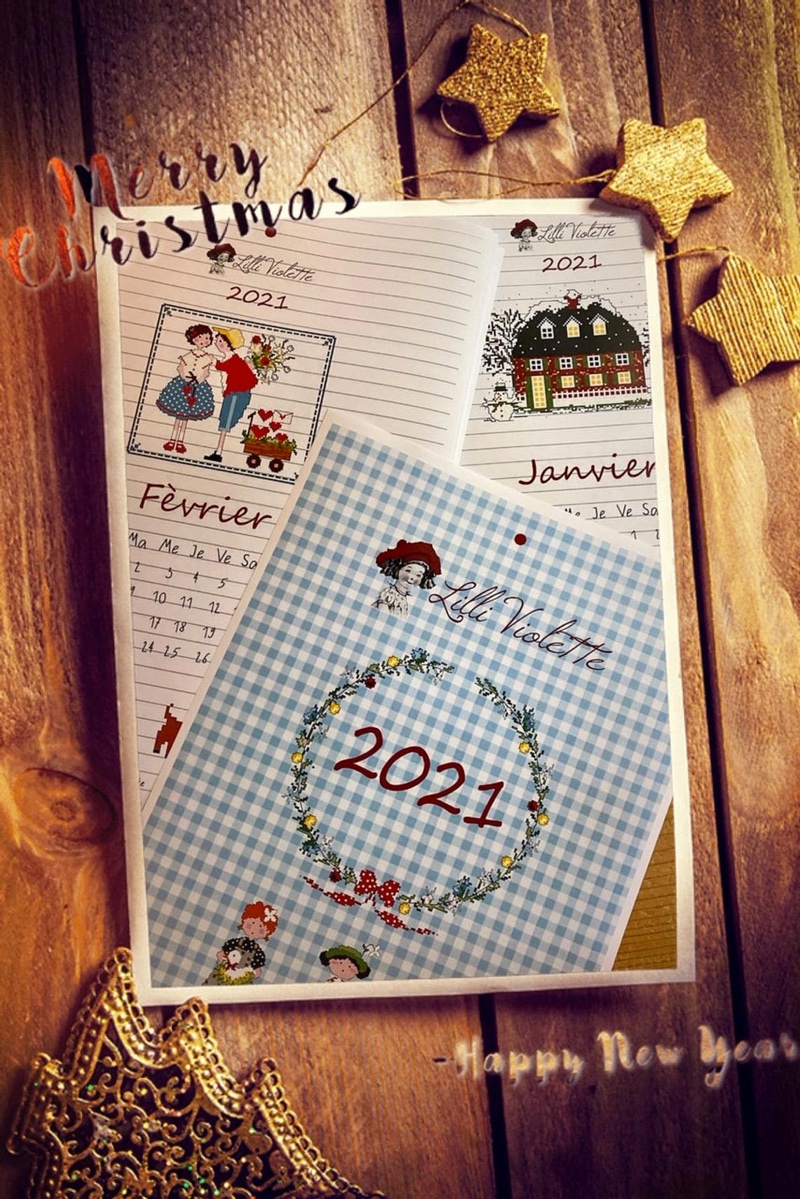 Merry
Christmas
Lilli Violette
2021
Fèvrier
Ma Me Je Ve Sa
2 3 4 5
10 11 12
17 18 19
24 25 26
Lilli Violette
2021
Janvier
Me Je Ve Sa
1
Lilli Violette
2021
-Happy New Year